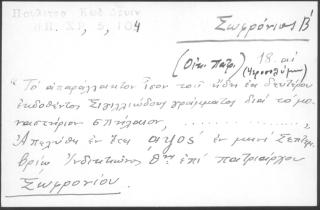 Σωφρόνιος Β´
(Οἰκ. Πατρ.) 18. αἰ
(Ἱεροσολύμων)
"Τὸ ἀπαράλλακτον ἴσον τοῦ ἤδη ἐκ δευτέρου
ἐκδοθέντος Σιγιλλιώδους γράμματος διὰ τὸ μο-
ναστήριον σπήλαιον, . . . . . . . . . . . . ,
Ἀπελύθη ἐν ἔτει αψοδ´ ἐν μηνὶ Σεπτεμ-
βρίῳ Ἰνδικτιῶνος 8ης ἐπὶ πατριάρχου
Σωφρονίου.